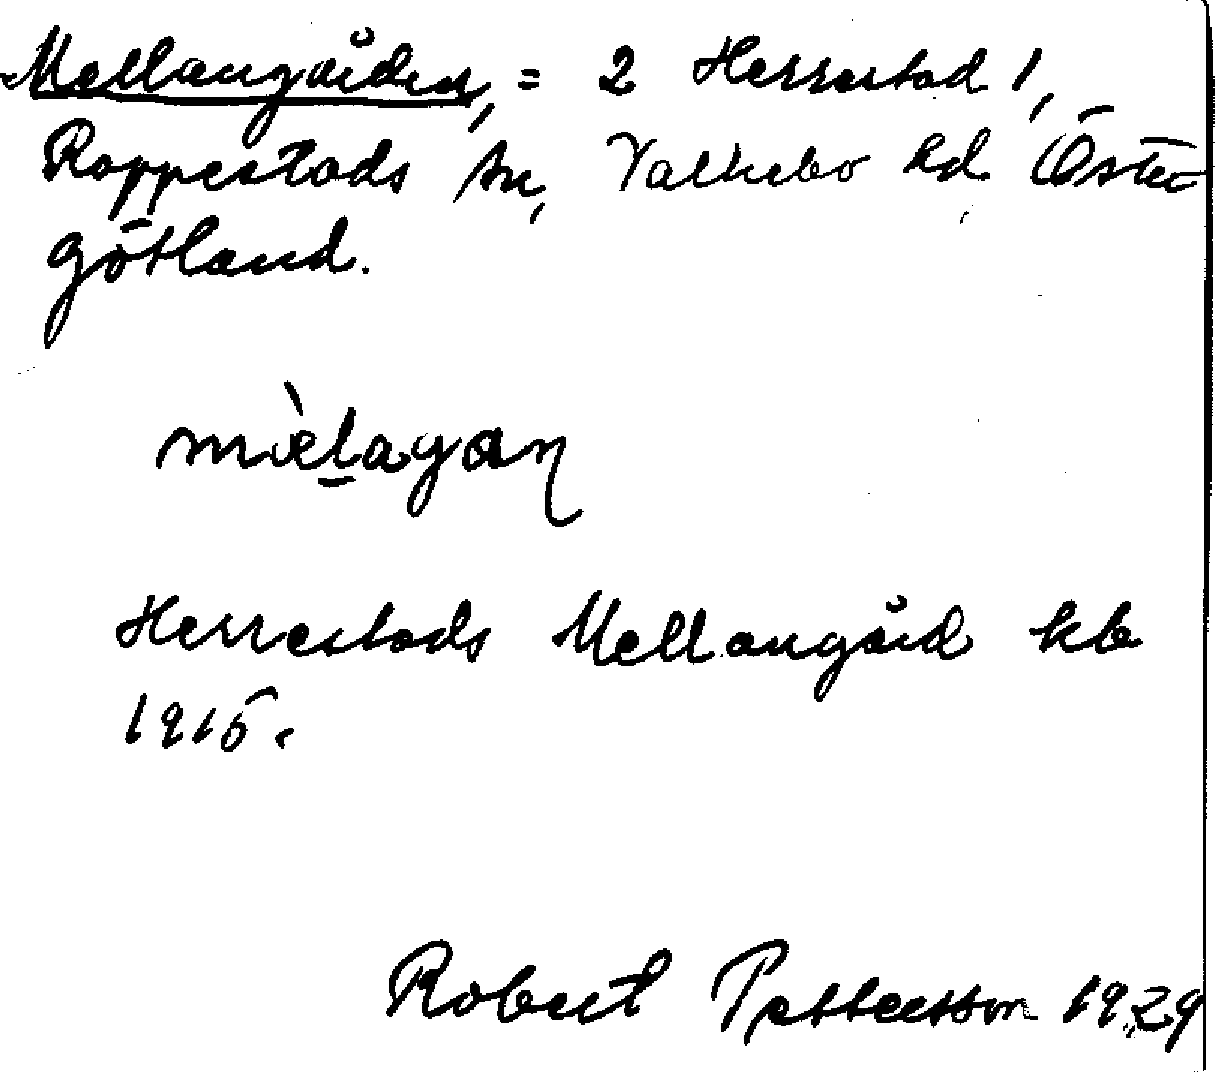 Mellangården, = 2 Herrestad 1,
Rappestads sn, Valkebo hd, Öster-
götland.
mæ̀l̠agaɳ
Herrestads Mellangård kb
1915.
Robert Pettersson 1929